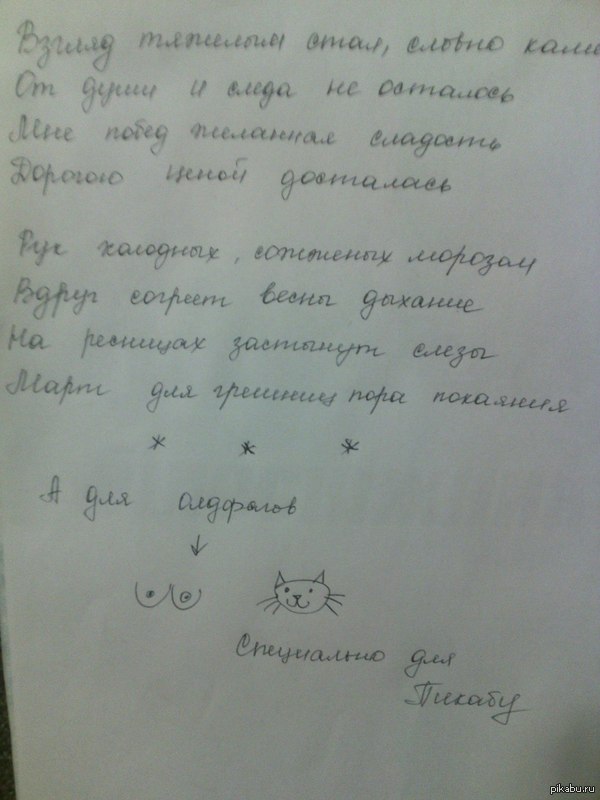 Взгляд тяжелым стал, словно каме
От души и следа не осталось
Мне побед желанная сладость
Дорогою ценой досталась
Рук холодных, сожженых морозом
Вдруг согреет весны дыхание
На ресницах застынут слезы
Март для грешниц пора покаяния
* * *
А для олдфагов
Специально для
Пикабу
pikabu.ru